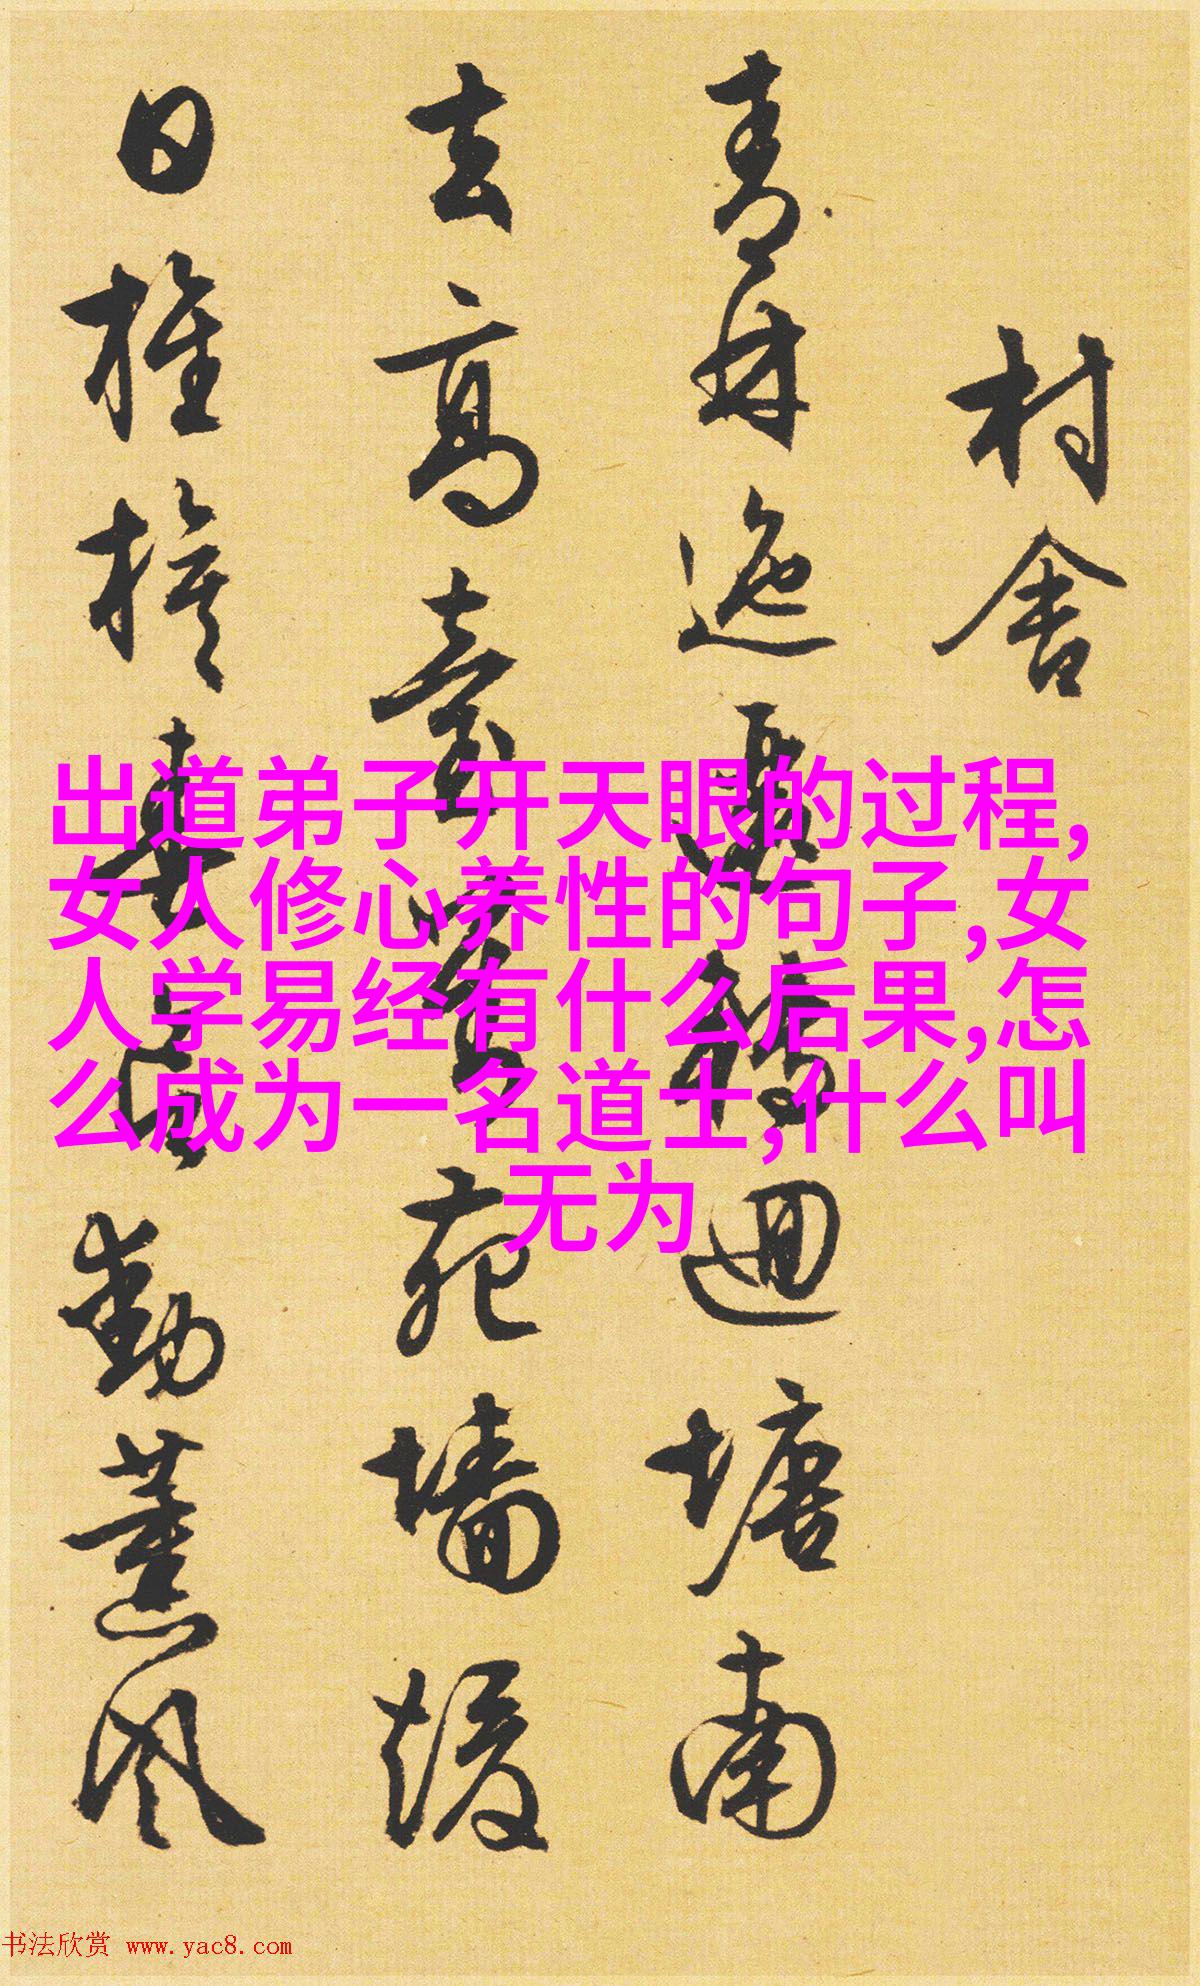 村舍
青林迤逦转回塘南
去高台对苑墙暖
日摧
勤薰风
出道弟子开天眼的过程,
女人修心养性的句子,女
人学易经有什么后果,怎
么成为一名道士,什么叫
无为
书法欣赏 www.yac8.com